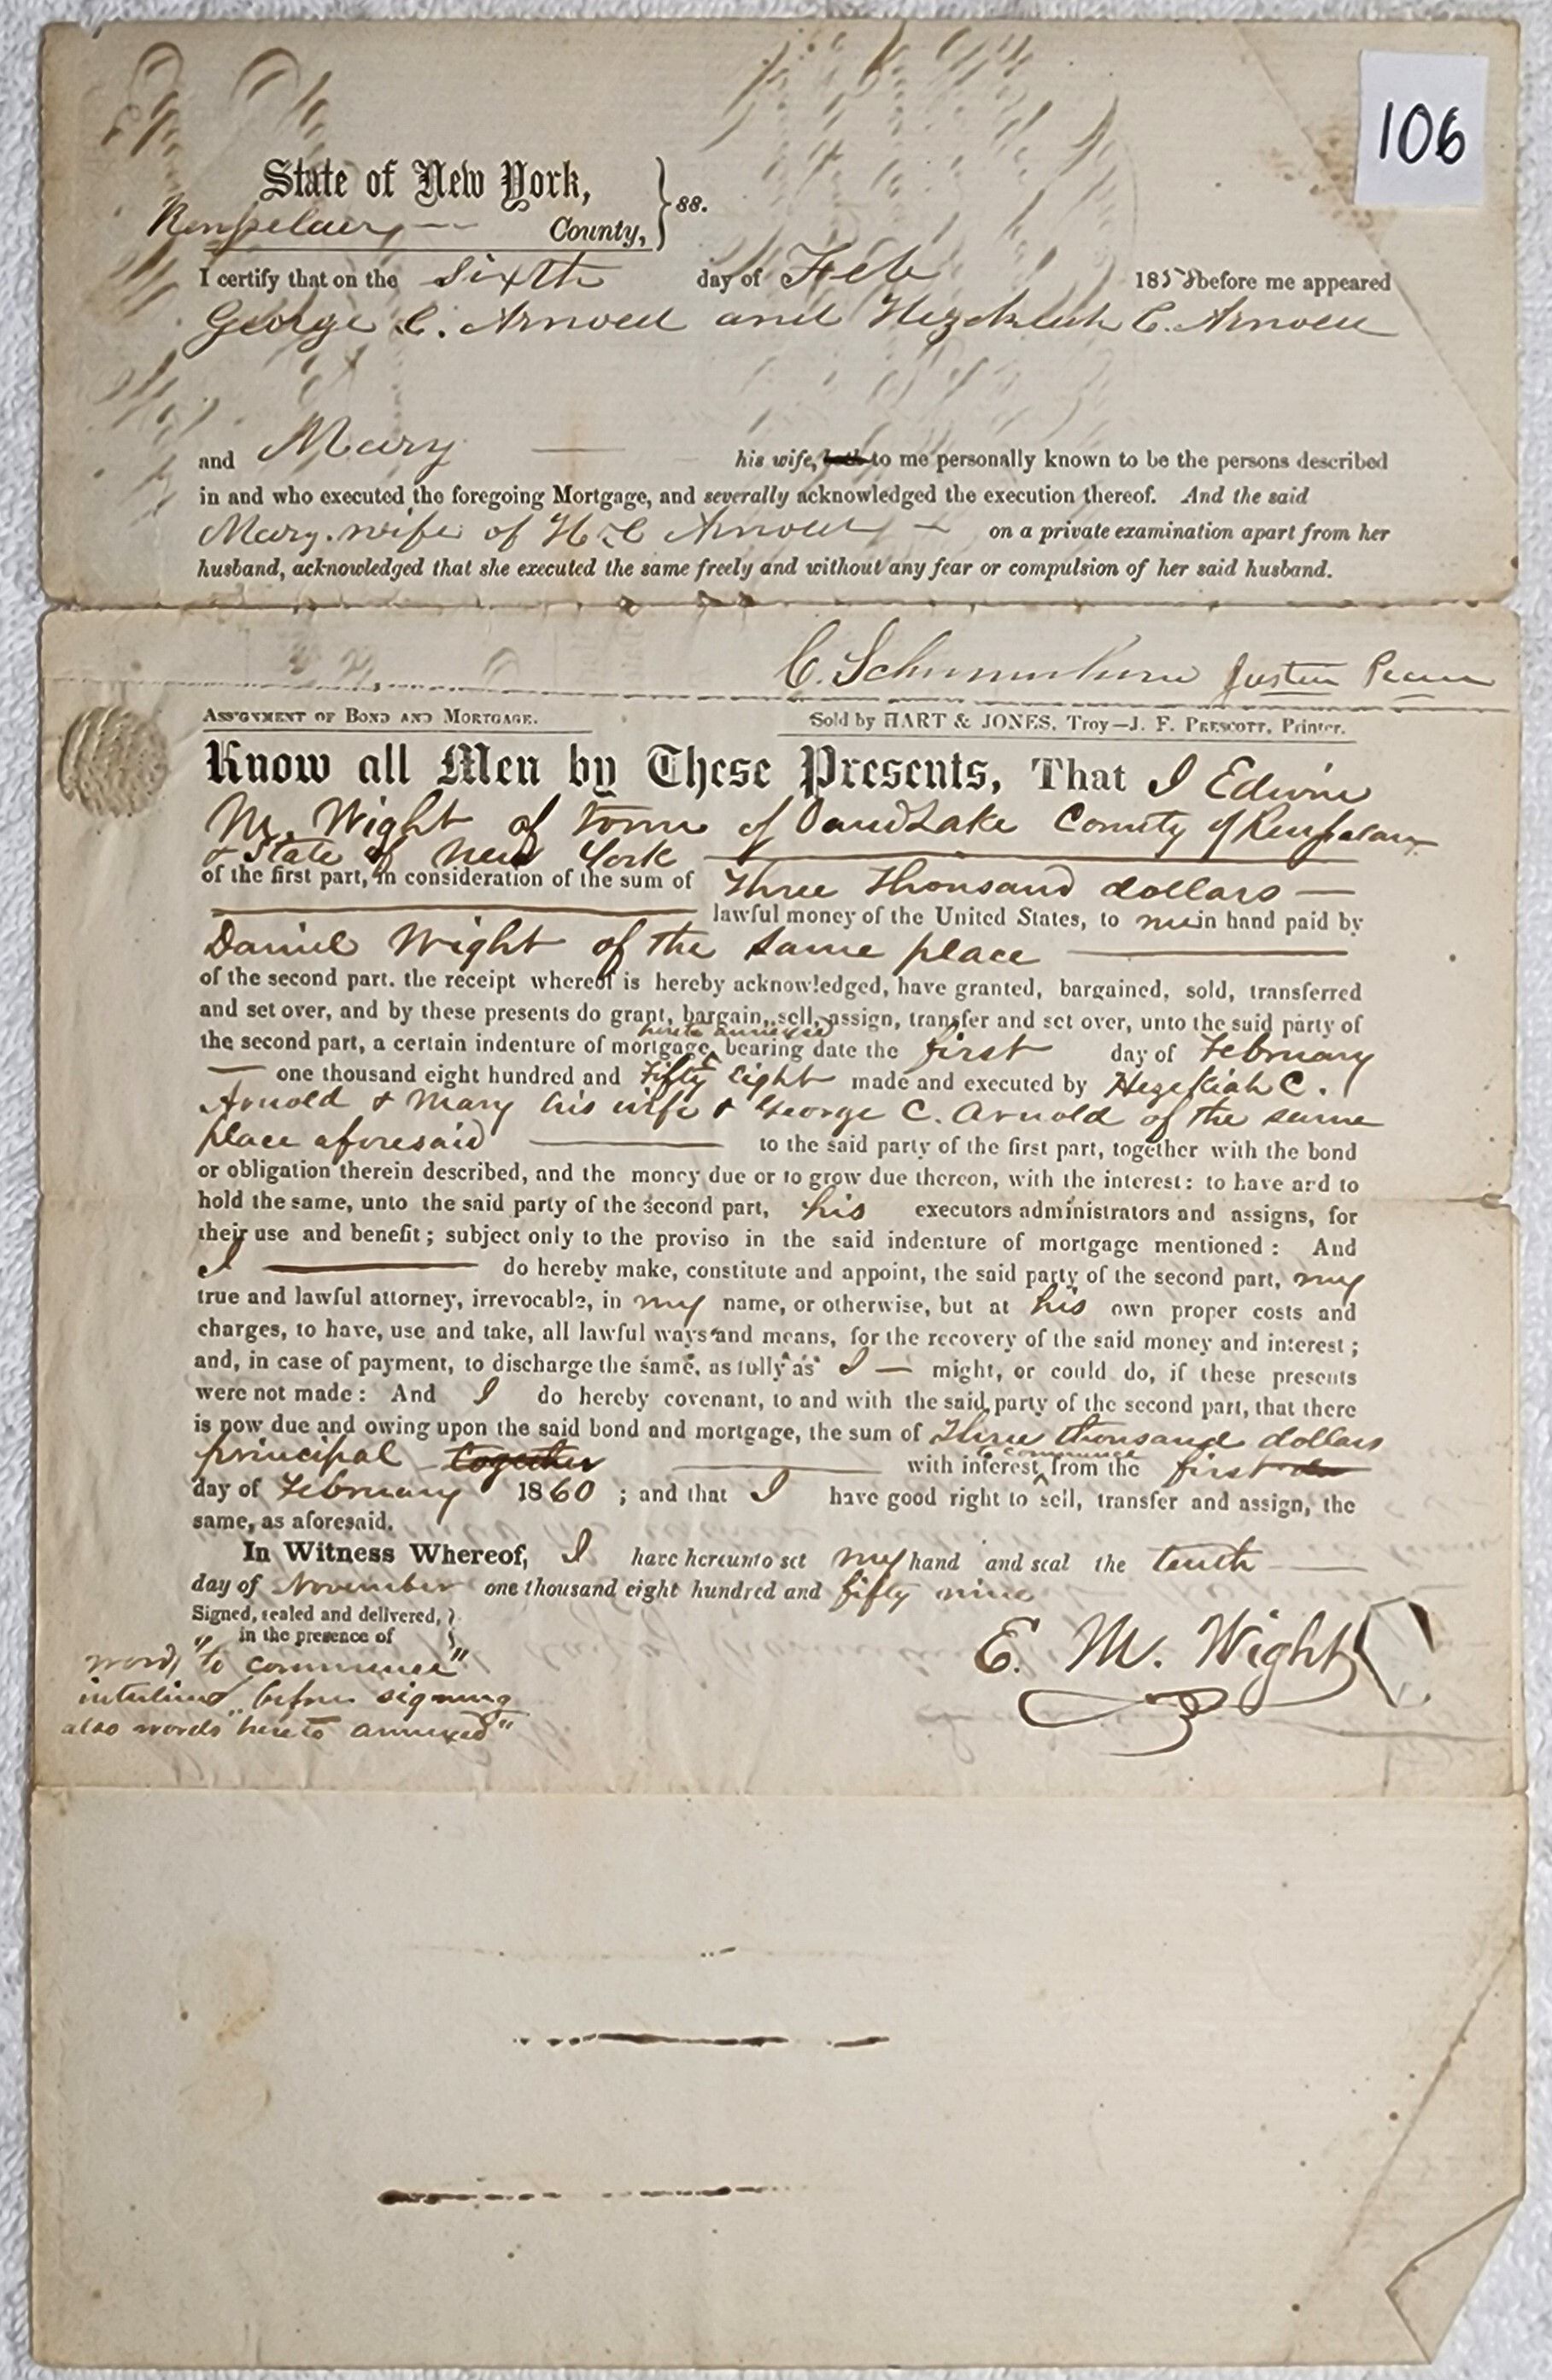 106
State of New York,
Rensselaer County, } ss.
I certify that on the Sixth day of Feb 1858 before me appeared
George C. Arnold and Hezekiah C. Arnold
and Mary his wife, both to me personally known to be the persons described
in and who executed the foregoing Mortgage, and severally acknowledged the execution thereof. And the said
Mary. wife of H C Arnold on a private examination apart from her
husband, acknowledged that she executed the same freely and without any fear or compulsion of her said husband.
C. Justice Peace
ASSIGNMENT OF BOND AND MORTGAGE. Sold by HART & JONES, Troy—J. F. PRESCOTT, Printer.
Know all Men by These Presents, That I Edwin
M. Wight of town of Sand Lake County of Rensselaer
& State of New York
of the first part, in consideration of the sum of Three thousand dollars —
lawful money of the United States, to me in hand paid by
Daniel Wight of the same place
of the second part. the receipt whereof is hereby acknowledged, have granted, bargained, sold, transferred
and set over, and by these presents do grant, bargain, sell, assign, transfer and set over, unto the said party of
hereto annexed
the second part, a certain indenture of mortgage, bearing date the first day of February
— one thousand eight hundred and Fifty Eight made and executed by Hezekiah C.
Arnold & Mary his wife & George C. Arnold of the same
place aforesaid to the said party of the first part, together with the bond
or obligation therein described, and the money due or to grow due thereon, with the interest: to have and to
hold the same, unto the said party of the second part, his executors administrators and assigns, for
their use and benefit; subject only to the proviso in the said indenture of mortgage mentioned: And
I do hereby make, constitute and appoint, the said party of the second part, my
true and lawful attorney, irrevocable, in my name, or otherwise, but at his own proper costs and
charges, to have, use and take, all lawful ways and means, for the recovery of the said money and interest;
and, in case of payment, to discharge the same, as fully as I — might, or could do, if these presents
were not made: And I do hereby covenant, to and with the said party of the second part, that there
is now due and owing upon the said bond and mortgage, the sum of Three thousand dollars
to commence
principal together with interest from the first
day of February 1860; and that I have good right to sell, transfer and assign, the
same, as aforesaid.
In Witness Whereof, I have hereunto set my hand and seal the tenth
day of November one thousand eight hundred and fifty nine
Signed, sealed and delivered, }
in the presence of }
E. M. Wight
words "to commence"
interlined before signing
also words "hereto annexed"